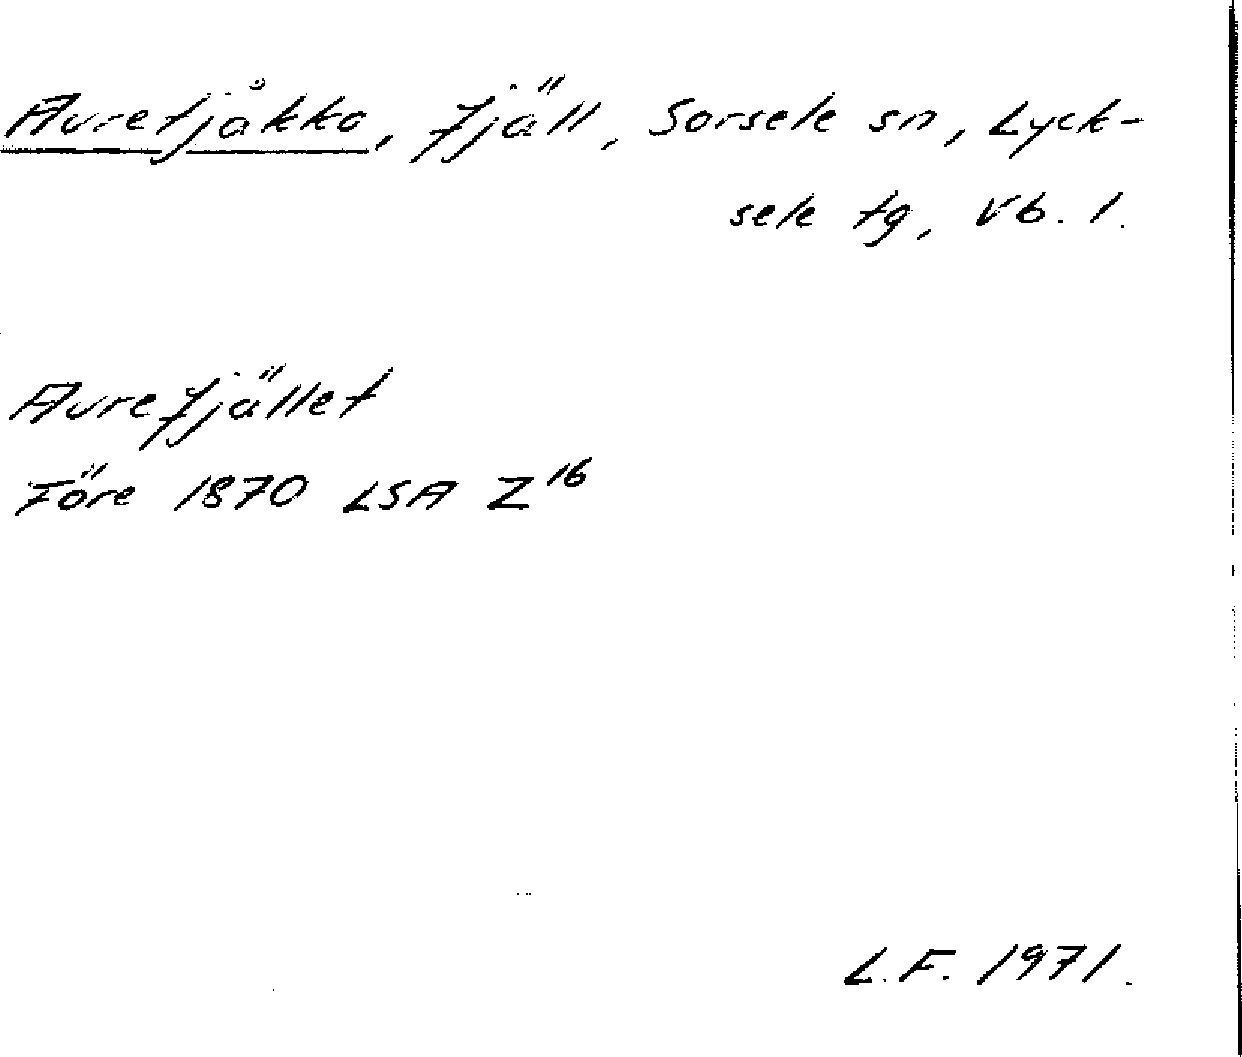 Auretjåkko, fjäll, Sorsele sn, Lyck-
sele tg, Vb. l.
Aurefjället
Före 1870 LSA Z¹⁶
L.F. 1971.